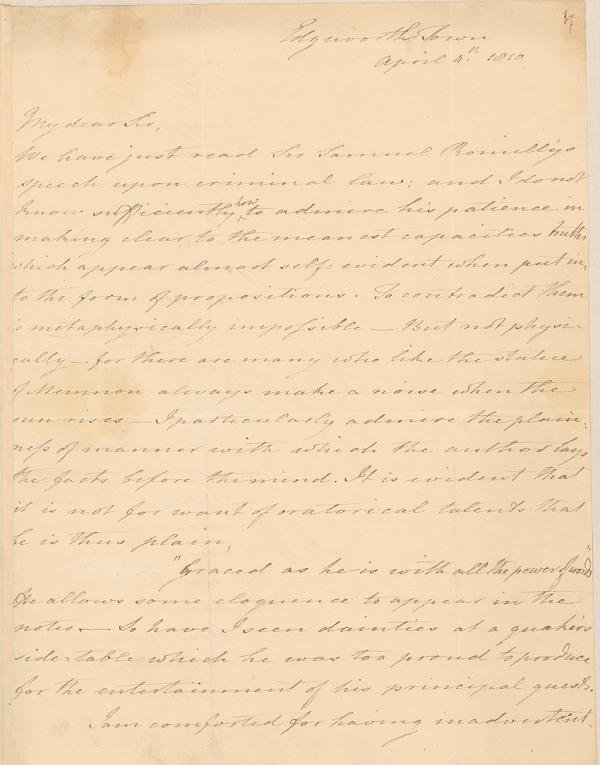 37
Edgworth's Town
April 4.th 1810
My dear Sir,
We have just read Sir Samuel Romilly's
speech upon criminal law; and I do not
know sufficiently how to admire his patience in
making clear to the meanest capacities truths
which appear almost self-evident when put in-
to the form of propositions. To contradict them
is metaphysically impossible — But not physi-
cally — for there are many who like the statue
of Memnon always make a noise when the
sun rises — I particularly admire the plain-
ness of manner with which the author lays
the facts before the mind. It is evident that
it is not for want of oratorical talents that
he is thus plain,
"Graced as he is with all the power of words"
He allows some eloquence to appear in the
notes — So have I seen dainties at a quaker's
side-table which he was too proud to produce
for the entertainment of his principal guests.
I am comforted for having inadvertent-